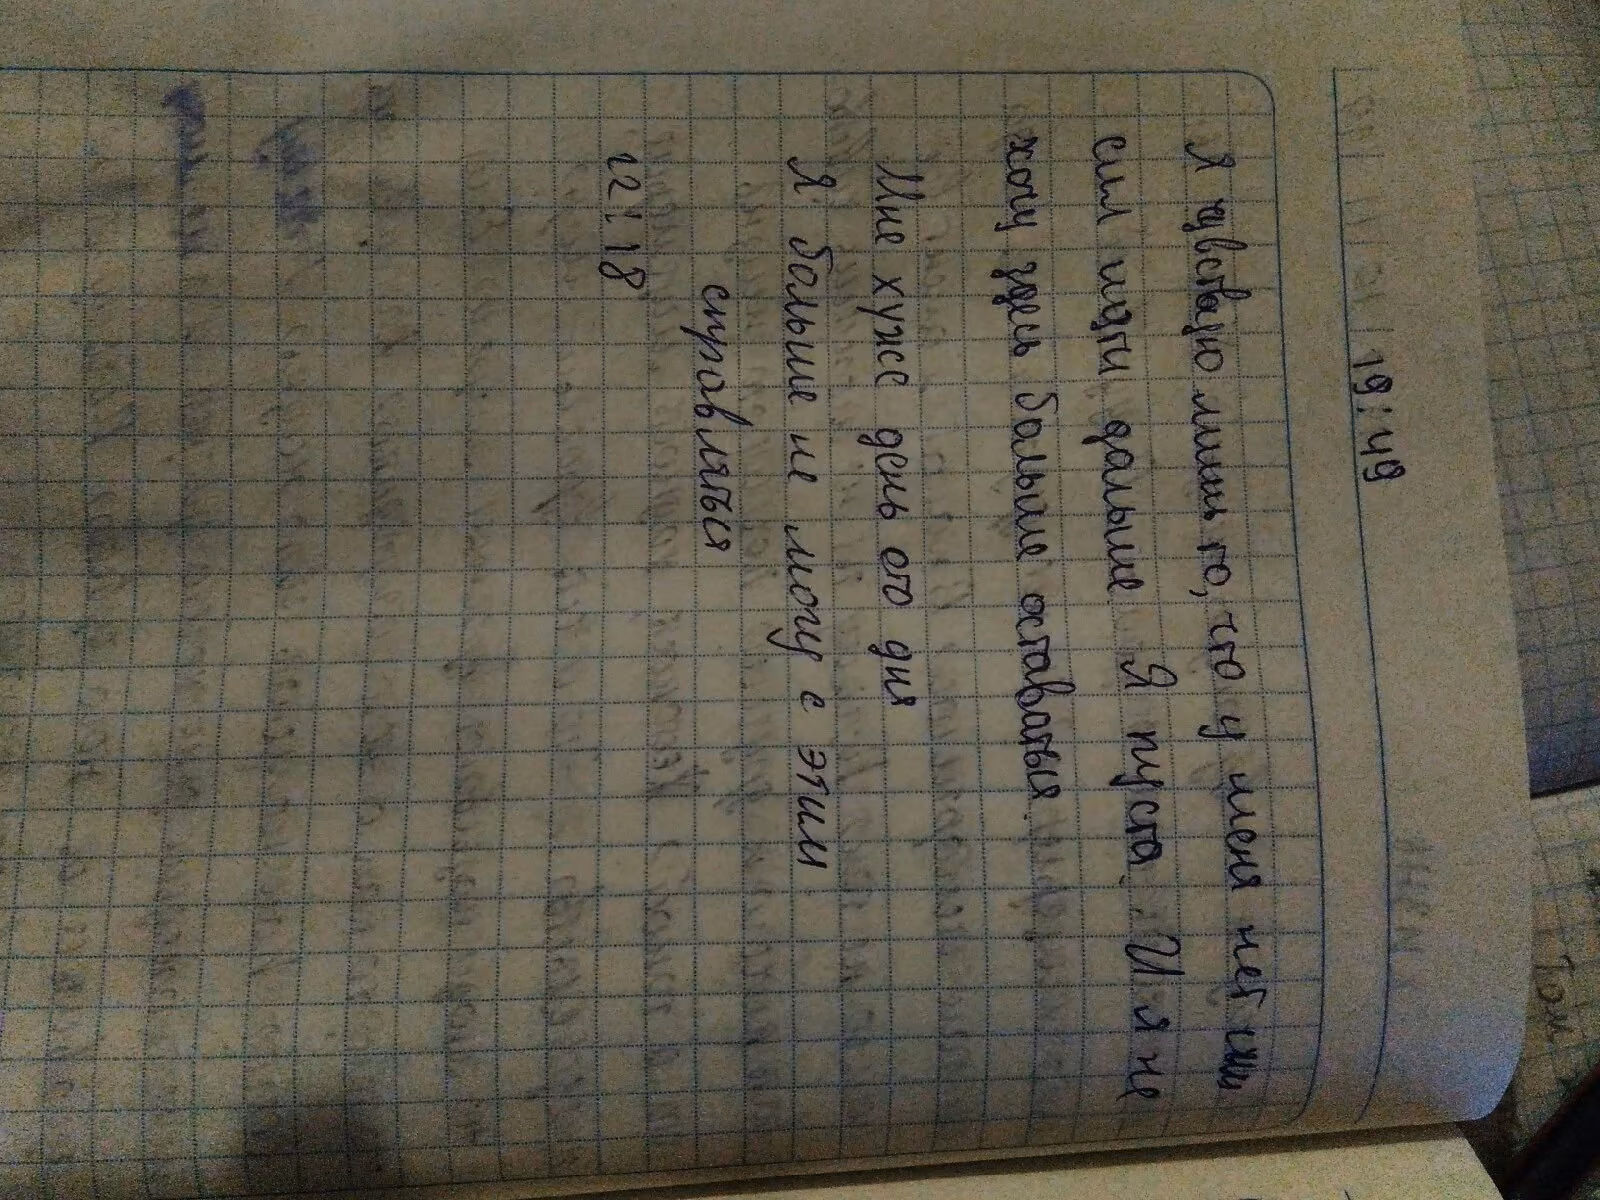 19:49
Я чувствую лишь то, что у меня нет
сил идти дальше Я пуста. И я не
хочу здесь больше оставаться.
Мне хуже день ото дня
Я больше не могу с этим
справляться
22:18
Том